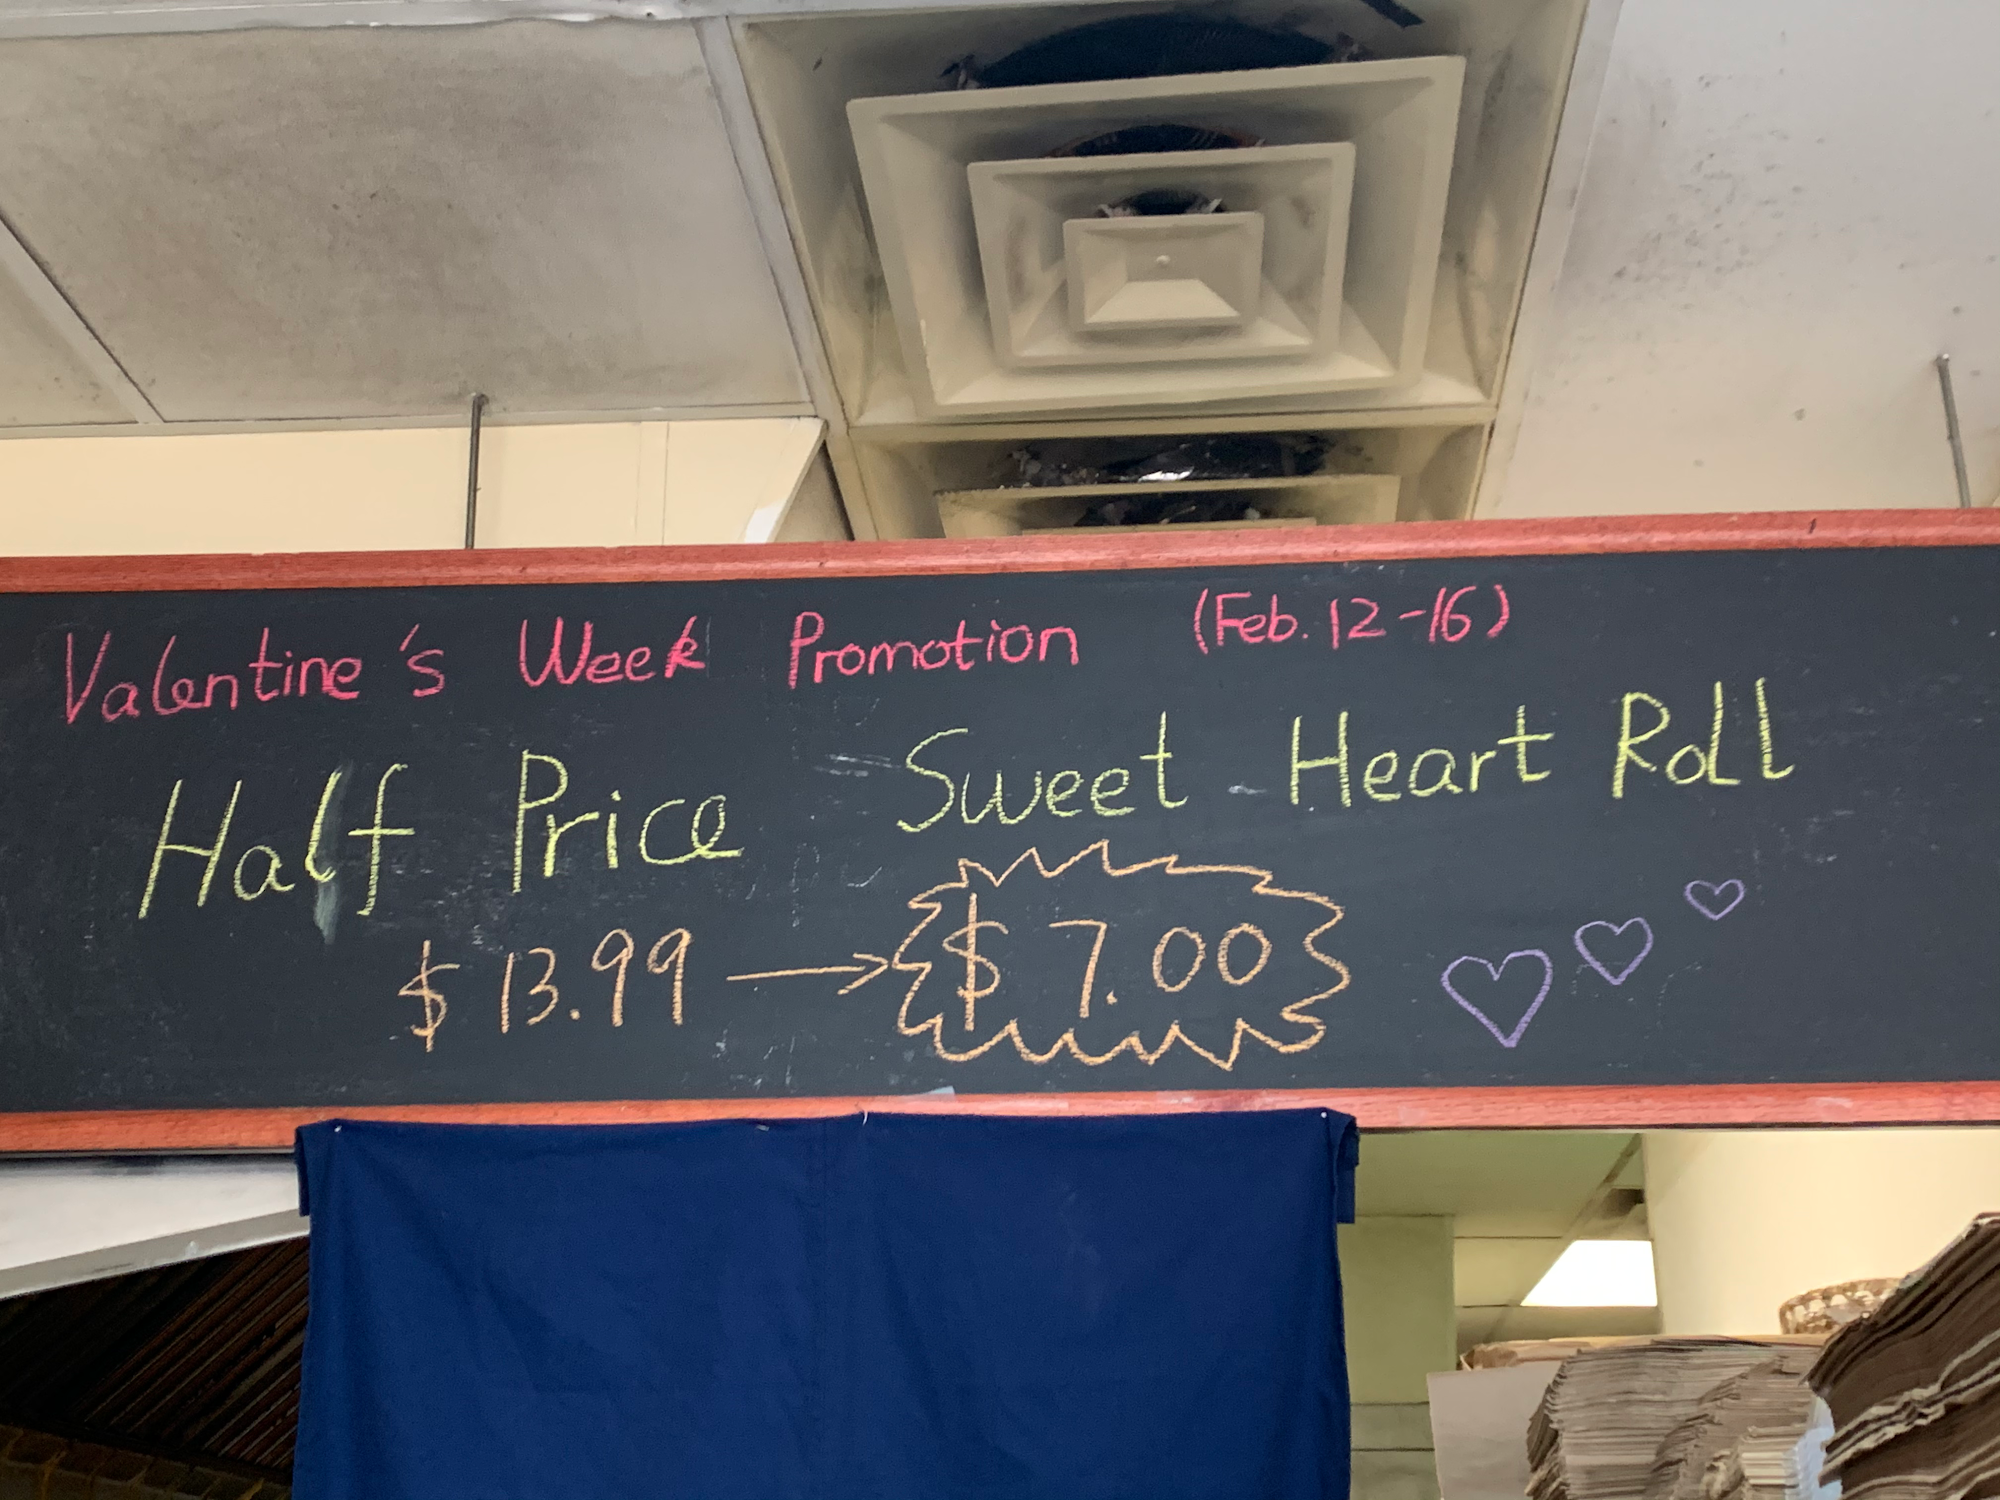 Valentine's Week Promotion (Feb. 12-16)
Half Price Sweet Heart Roll
$ 13.99 → $ 7.00